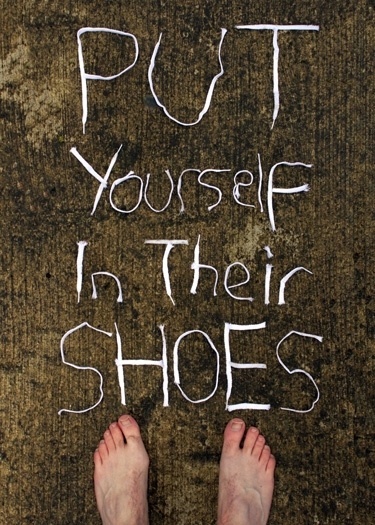 PUT
Yourself
In Their
SHOES